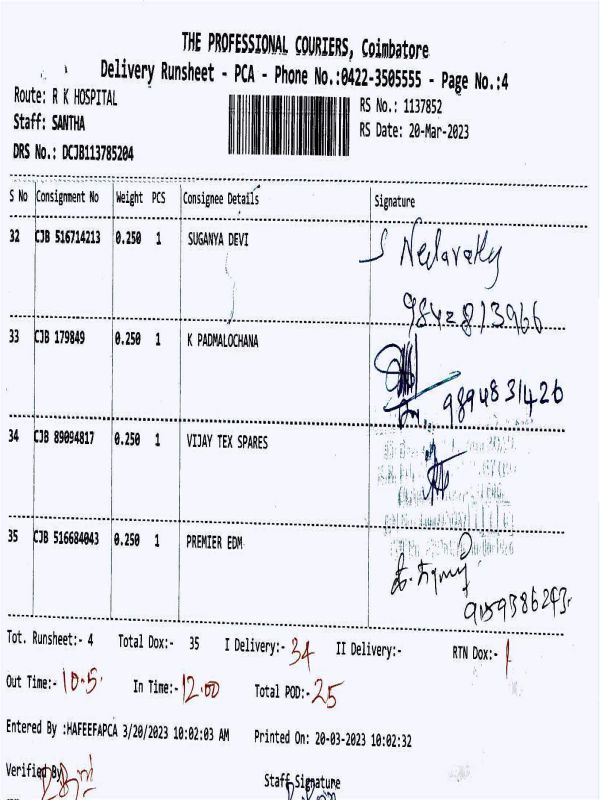 THE PROFESSIONAL COURIERS, Coimbatore
Delivery Runsheet - PCA - Phone No.:0422-3505555 - Page No.:4
Route: R K HOSPITAL
RS No.: 1137852
Staff: SANTHA
RS Date: 20-Mar-2023
DRS No.: DCJB113785204
S No Consignment No Weight PCS Consignee Details Signature
32 CJB 516714213 0.250 1 SUGANYA DEVI
9842813966
33 CJB 179849 0.250 1 K PADMALOCHANA
9894831426
34 CJB 89094817 0.250 1 VIJAY TEX SPARES
35 CJB 516684043 0.250 1 PREMIER EDM
9159386243
Tot. Runsheet:- 4 Total Dox:- 35 I Delivery:- 34 II Delivery:- RTN Dox:- 1
Out Time:- 10.5 In Time:- 12.00 Total POD:- 25
Entered By :HAFEEFAPCA 3/20/2023 10:02:03 AM Printed On: 20-03-2023 10:02:32
Verified By
Staff Signature